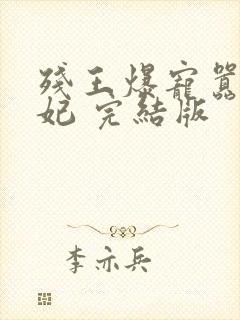 残王爆寵囂
妃 完結版
李亦兵